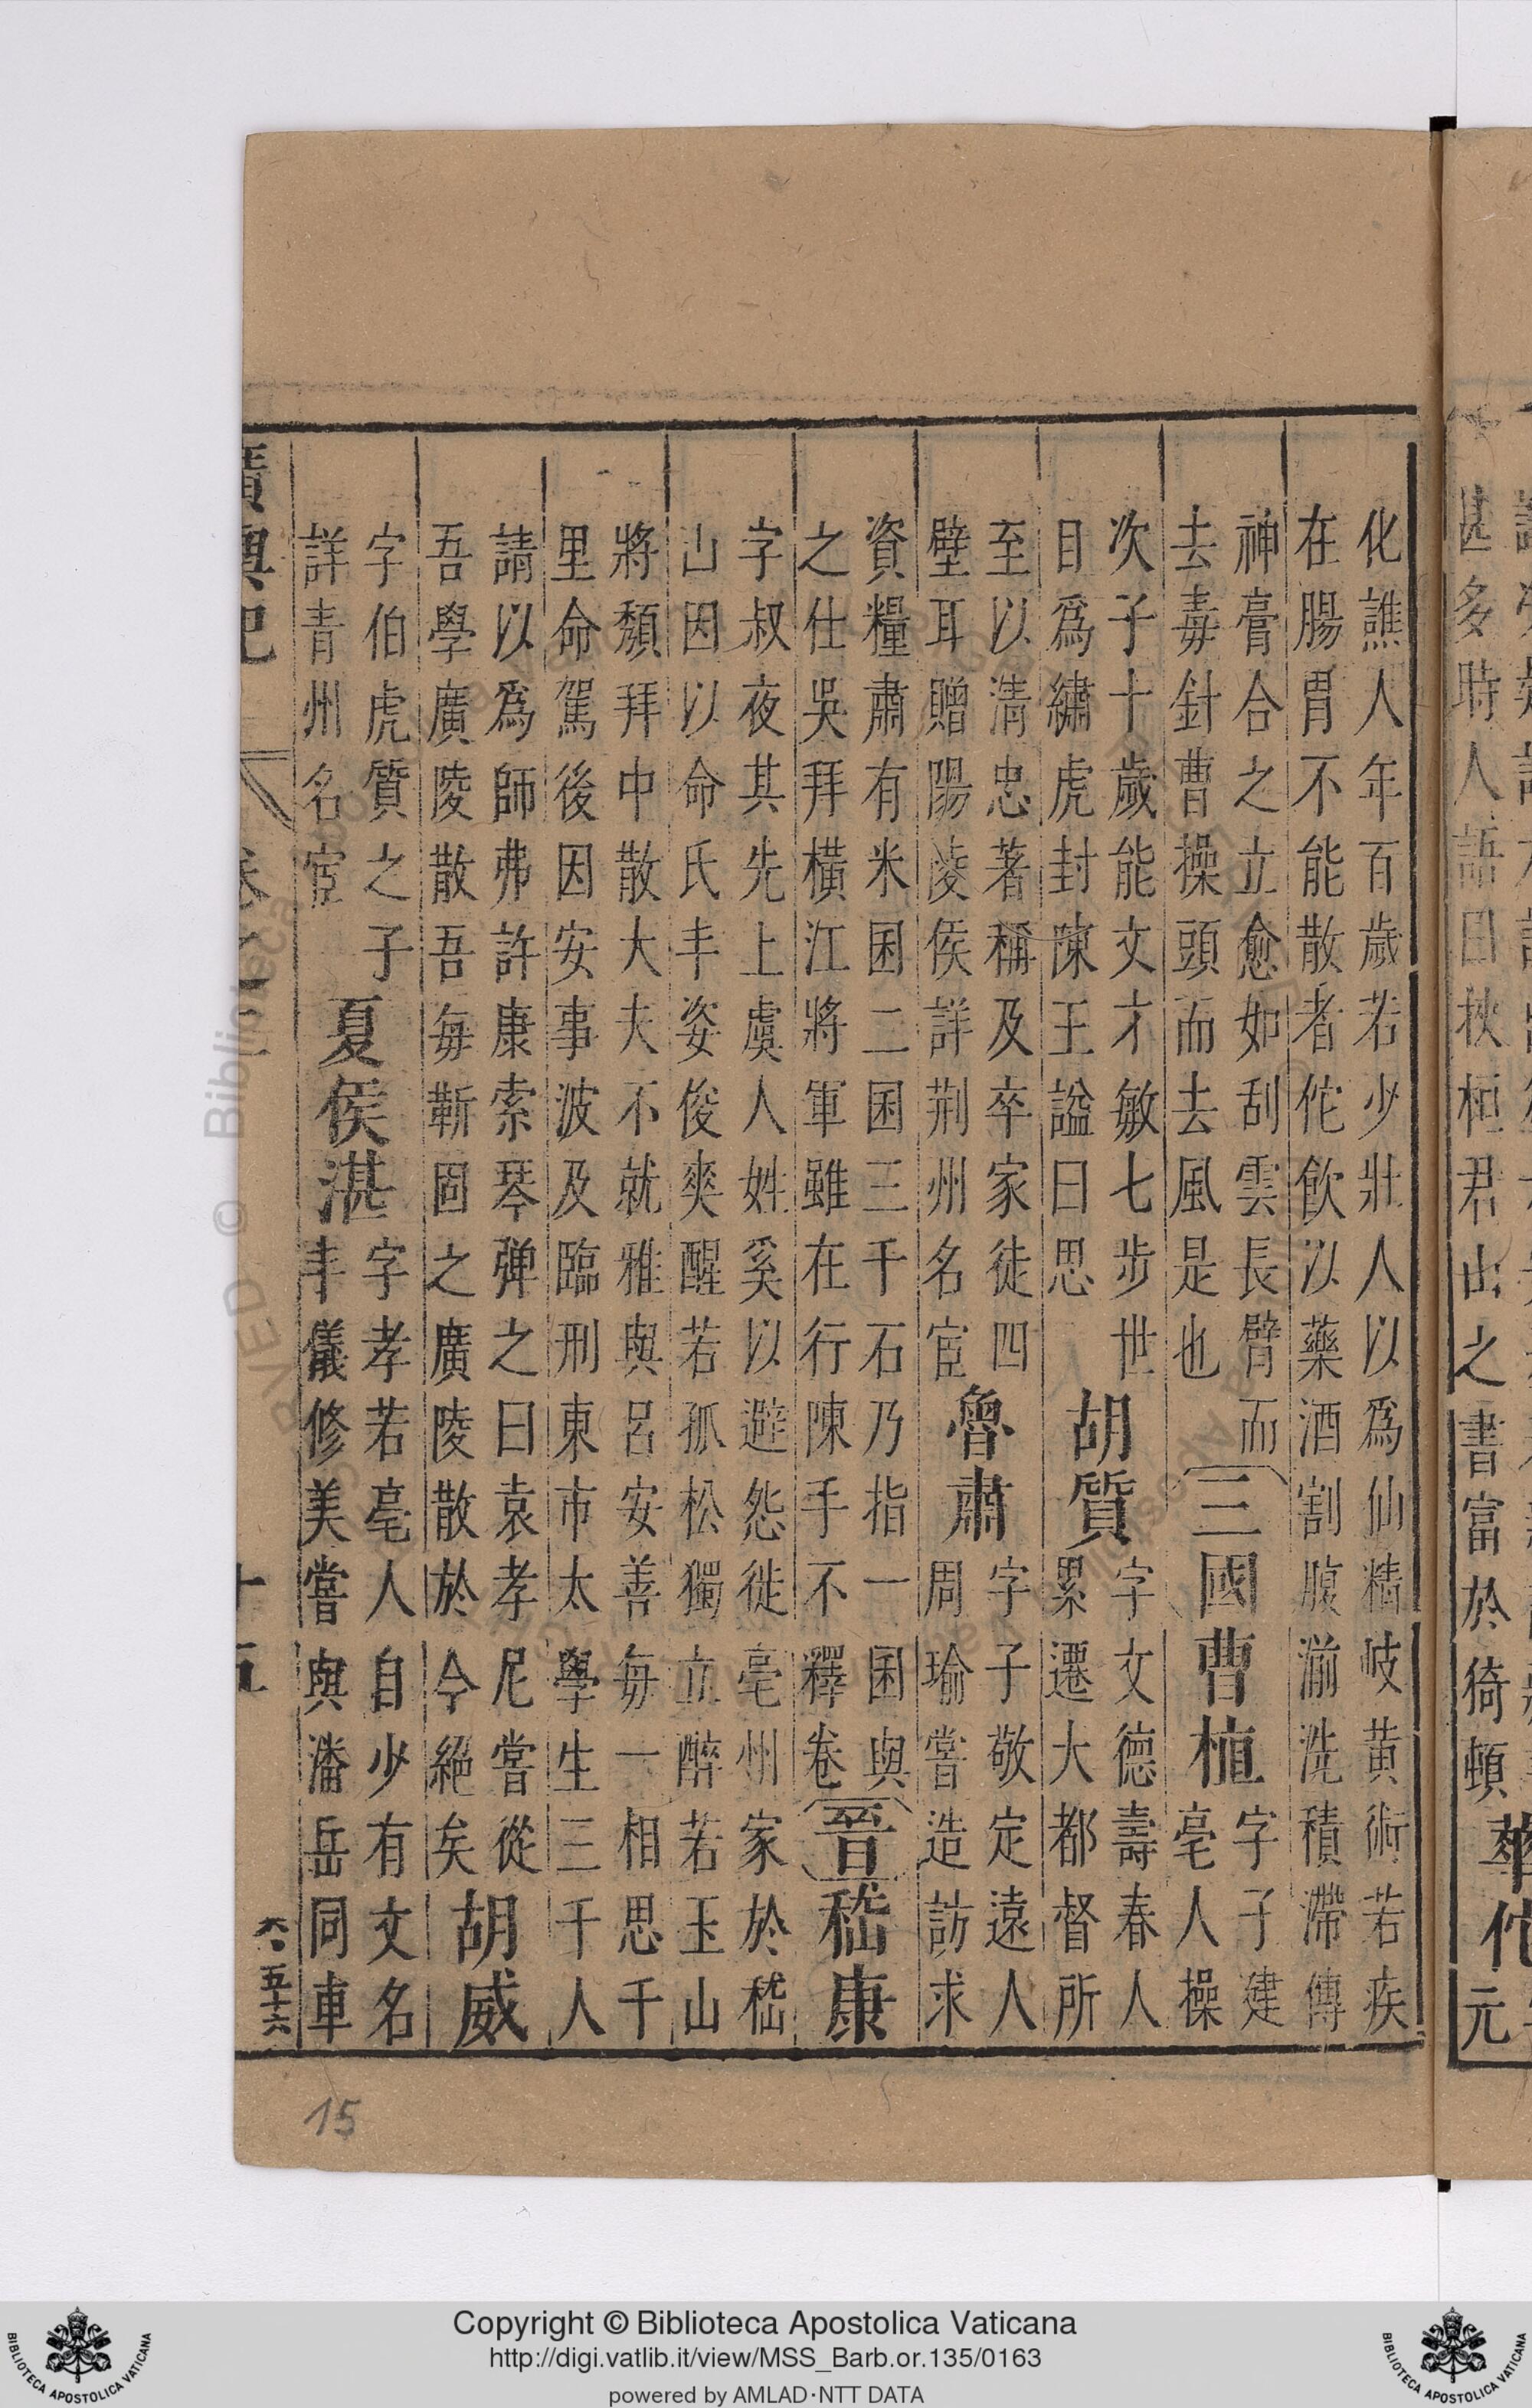 甚多時人語曰挾桓君山之書富於猗頓
華佗
元
化譙人年百歲若少壯人以爲仙精岐黃術若疾
在腸胃不能散者佗飲以藥酒割腹湔洗積滯傅
神膏合之立愈如刮雲長臂而
去毒針曹操頭而去風是也
三國曹植
字子建
亳人操
次子十歲能文才敏七步世
目爲繡虎封陳王謚曰思
胡質
字文德壽春人
累遷大都督所
至以清忠著稱及卒家徒四
壁耳贈陽淩侯詳荆州名宦
魯肅
字子敬定遠人
周瑜嘗造訪求
資糧肅有米囷二囷三千石乃指一囷與
之仕吳拜橫江將軍雖在行陳手不釋卷
晉嵇康
字叔夜其先上虞人姓奚以避怨徙亳州家於嵇
山因以命氏丰姿俊爽醒若孤松獨立醉若玉山
將頹拜中散大夫不就雅與呂安善每一相思千
里命駕後因安事波及臨刑東市太學生三千人
請以爲師弗許康索琴彈之曰袁孝尼嘗從
吾學廣陵散吾每靳固之廣陵散於今絕矣
胡威
字伯虎質之子
詳青州名宦
夏侯湛
字孝若亳人自少有文名
丰儀修美嘗與潘岳同車
廣輿記
十五
五十六
15
Copyright © Biblioteca Apostolica Vaticana
http://digi.vatlib.it/view/MSS_Barb.or.135/0163
powered by AMLAD·NTT DATA
BIBLIOTECA APOSTOLICA VATICANA
BIBLIOTECA APOSTOLICA VATICANA